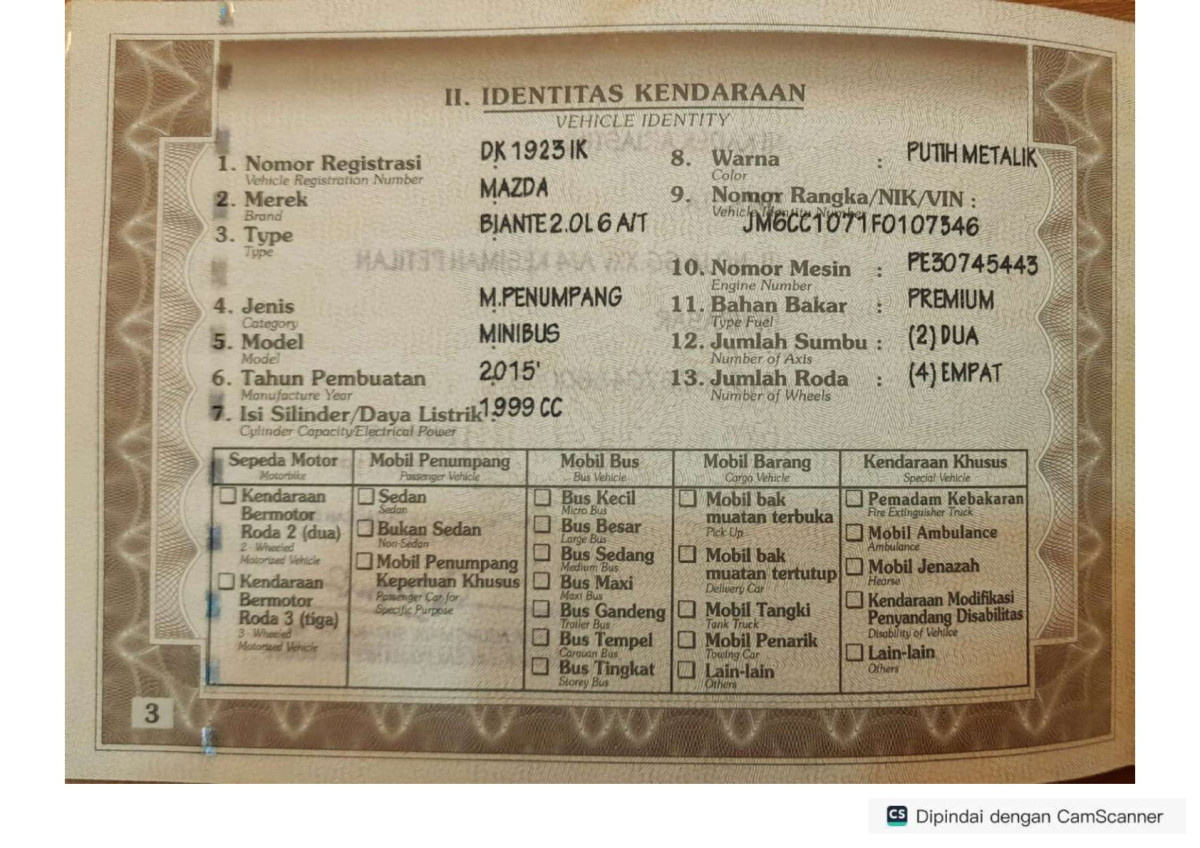 II. IDENTITAS KENDARAAN
VEHICLE IDENTITY
1. Nomor Registrasi DK 1923 IK
Vehicle Registration Number
2. Merek MAZDA
Brand
3. Type BIANTE 2.0L 6 A/T
Type
4. Jenis M.PENUMPANG
Category
5. Model MINIBUS
Model
6. Tahun Pembuatan 2015'
Manufacture Year
7. Isi Silinder/Daya Listrik : 1999 CC
Cylinder Capacity/Electrical Power
8. Warna : PUTIH METALIK
Color
9. Nomor Rangka/NIK/VIN :
Vehicle Identity Number
JM6CC1071F0107346
10. Nomor Mesin : PE30745443
Engine Number
11. Bahan Bakar : PREMIUM
Type Fuel
12. Jumlah Sumbu : (2) DUA
Number of Axis
13. Jumlah Roda : (4) EMPAT
Number of Wheels
Sepeda Motor
Motorbike
Kendaraan
Bermotor
Roda 2 (dua)
2 - Wheeled
Motorized Vehicle
Kendaraan
Bermotor
Roda 3 (tiga)
3 - Wheeled
Motorized Vehicle
Mobil Penumpang
Passenger Vehicle
Sedan
Sedan
Bukan Sedan
Non-Sedan
Mobil Penumpang
Keperluan Khusus
Passenger Car for
Specific Purpose
Mobil Bus
Bus Vehicle
Bus Kecil
Micro Bus
Bus Besar
Large Bus
Bus Sedang
Medium Bus
Bus Maxi
Maxi Bus
Bus Gandeng
Trailer Bus
Bus Tempel
Caravan Bus
Bus Tingkat
Storey Bus
Mobil Barang
Cargo Vehicle
Mobil bak
muatan terbuka
Pick Up
Mobil bak
muatan tertutup
Delivery Car
Mobil Tangki
Tank Truck
Mobil Penarik
Towing Car
Lain-lain
Others
Kendaraan Khusus
Special Vehicle
Pemadam Kebakaran
Fire Extinguisher Truck
Mobil Ambulance
Ambulance
Mobil Jenazah
Hearse
Kendaraan Modifikasi
Penyandang Disabilitas
Disability of Vehilce
Lain-lain
Others
3
CS Dipindai dengan CamScanner